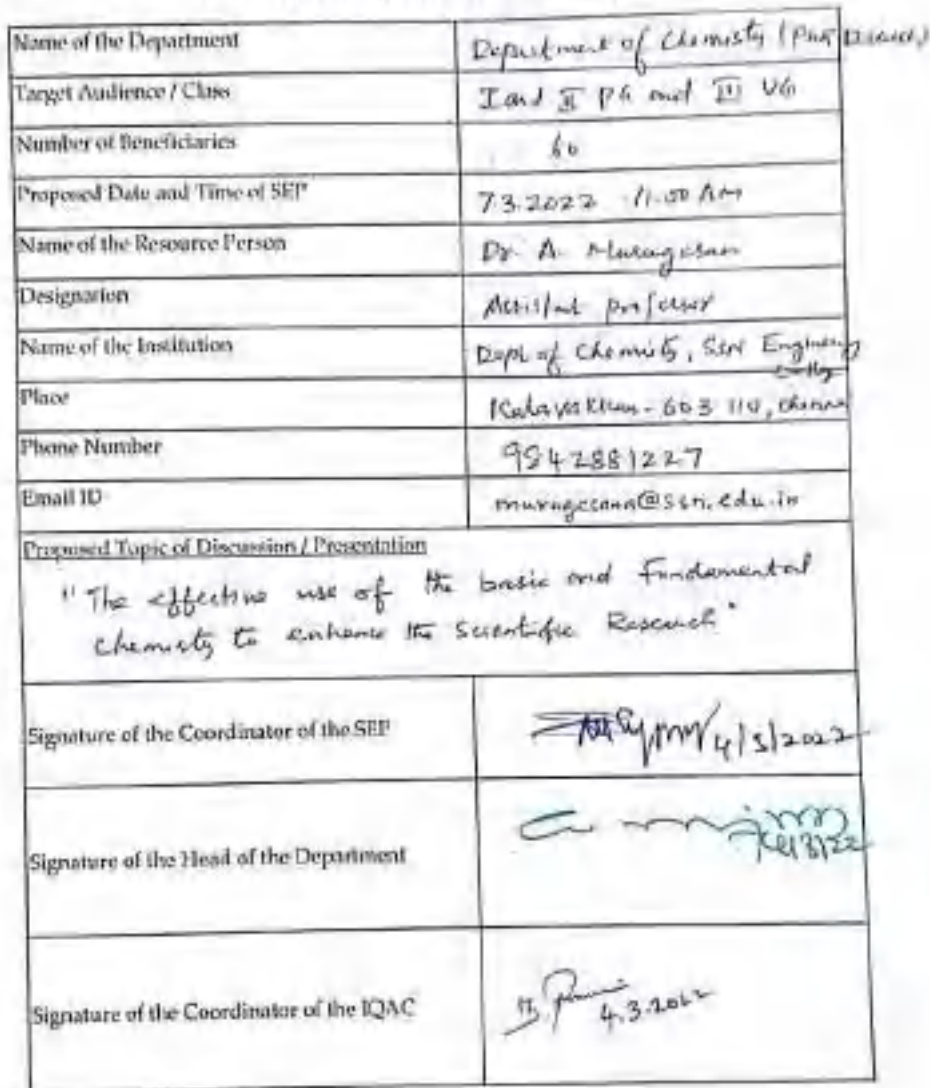 Name of the Department Department of Chemisty (
Target Audience / Class I and II PG and III UG
Number of Beneficiaries 60
Proposed Date and Time of SEP 7.3.2022 11.00 AM
Name of the Resource Person Dr. A. Murugesan
Designation Assistant professor
Name of the Institution Dept of Chemisty, SSN Engineering
Place - 603 110, Chennai
Phone Number 9842881227
Email ID murugesana@ssn.edu.in
Proposed Topic of Discussion / Presentation
"The effective use of the basic and Fundamental
chemisty to enhance the Scientific Research"
Signature of the Coordinator of the SEP 4/3/2022
Signature of the Head of the Department 4/3/22
Signature of the Coordinator of the IQAC 4.3.2022